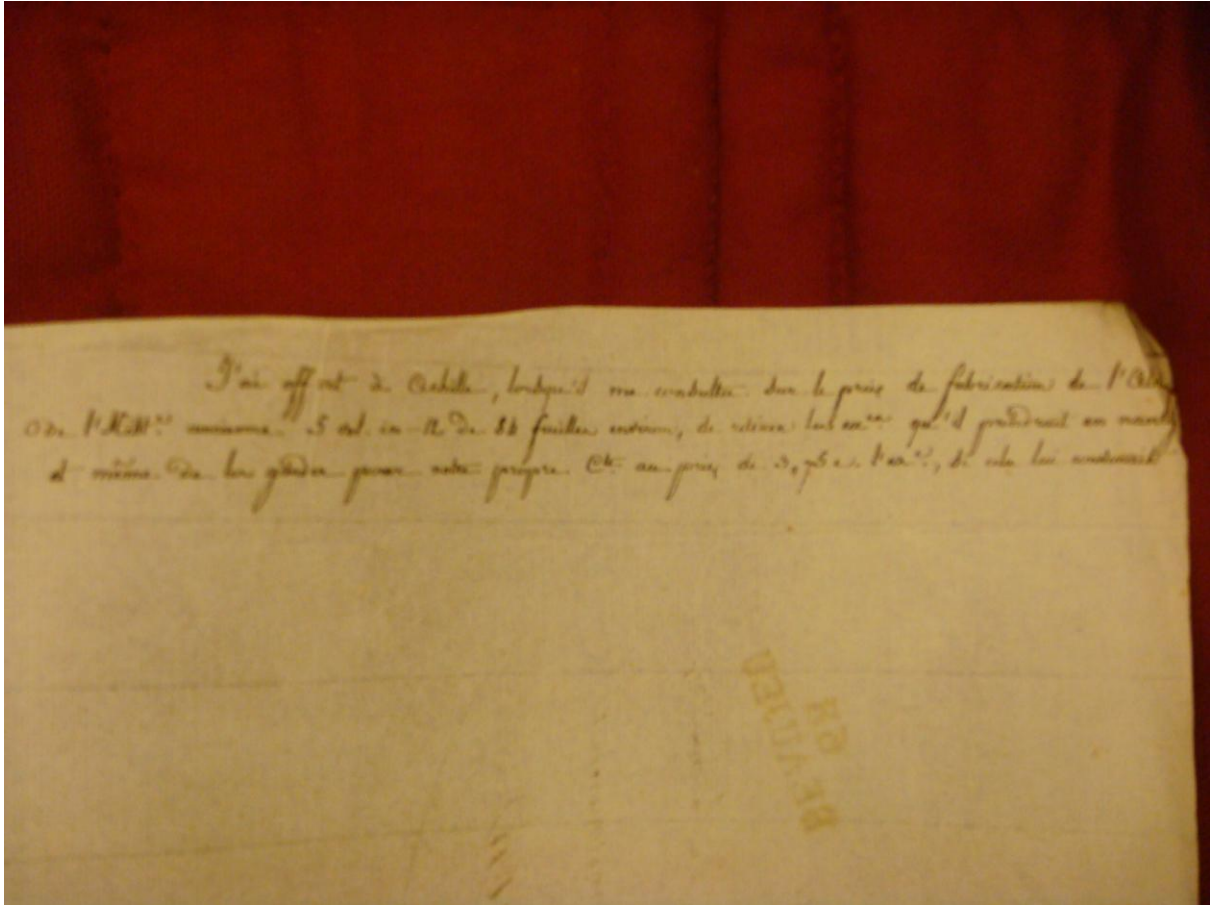 J'ai offert à Achille, lorsqu'il me consulta sur le prix de fabrication de l'
de l'Hist.re ancienne 5 vol. in-12 de 84 feuilles environ, de retirer les ex.res qu'il prendrait en
et même de les garder pour notre propre Cte au prix de 3,75 c. l'ex.re, si cela lui